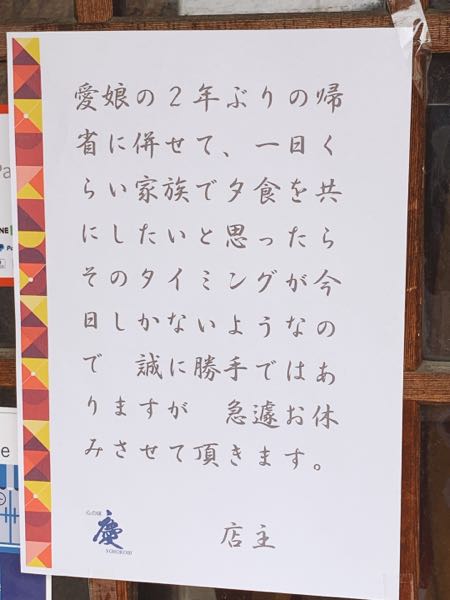 愛娘の2年ぶりの帰
省に併せて、一日く
らい家族で夕食を共
にしたいと思ったら
そのタイミングが今
日しかないようなの
で　誠に勝手ではあ
りますが　急遽お休
みさせて頂きます。
慶
店主